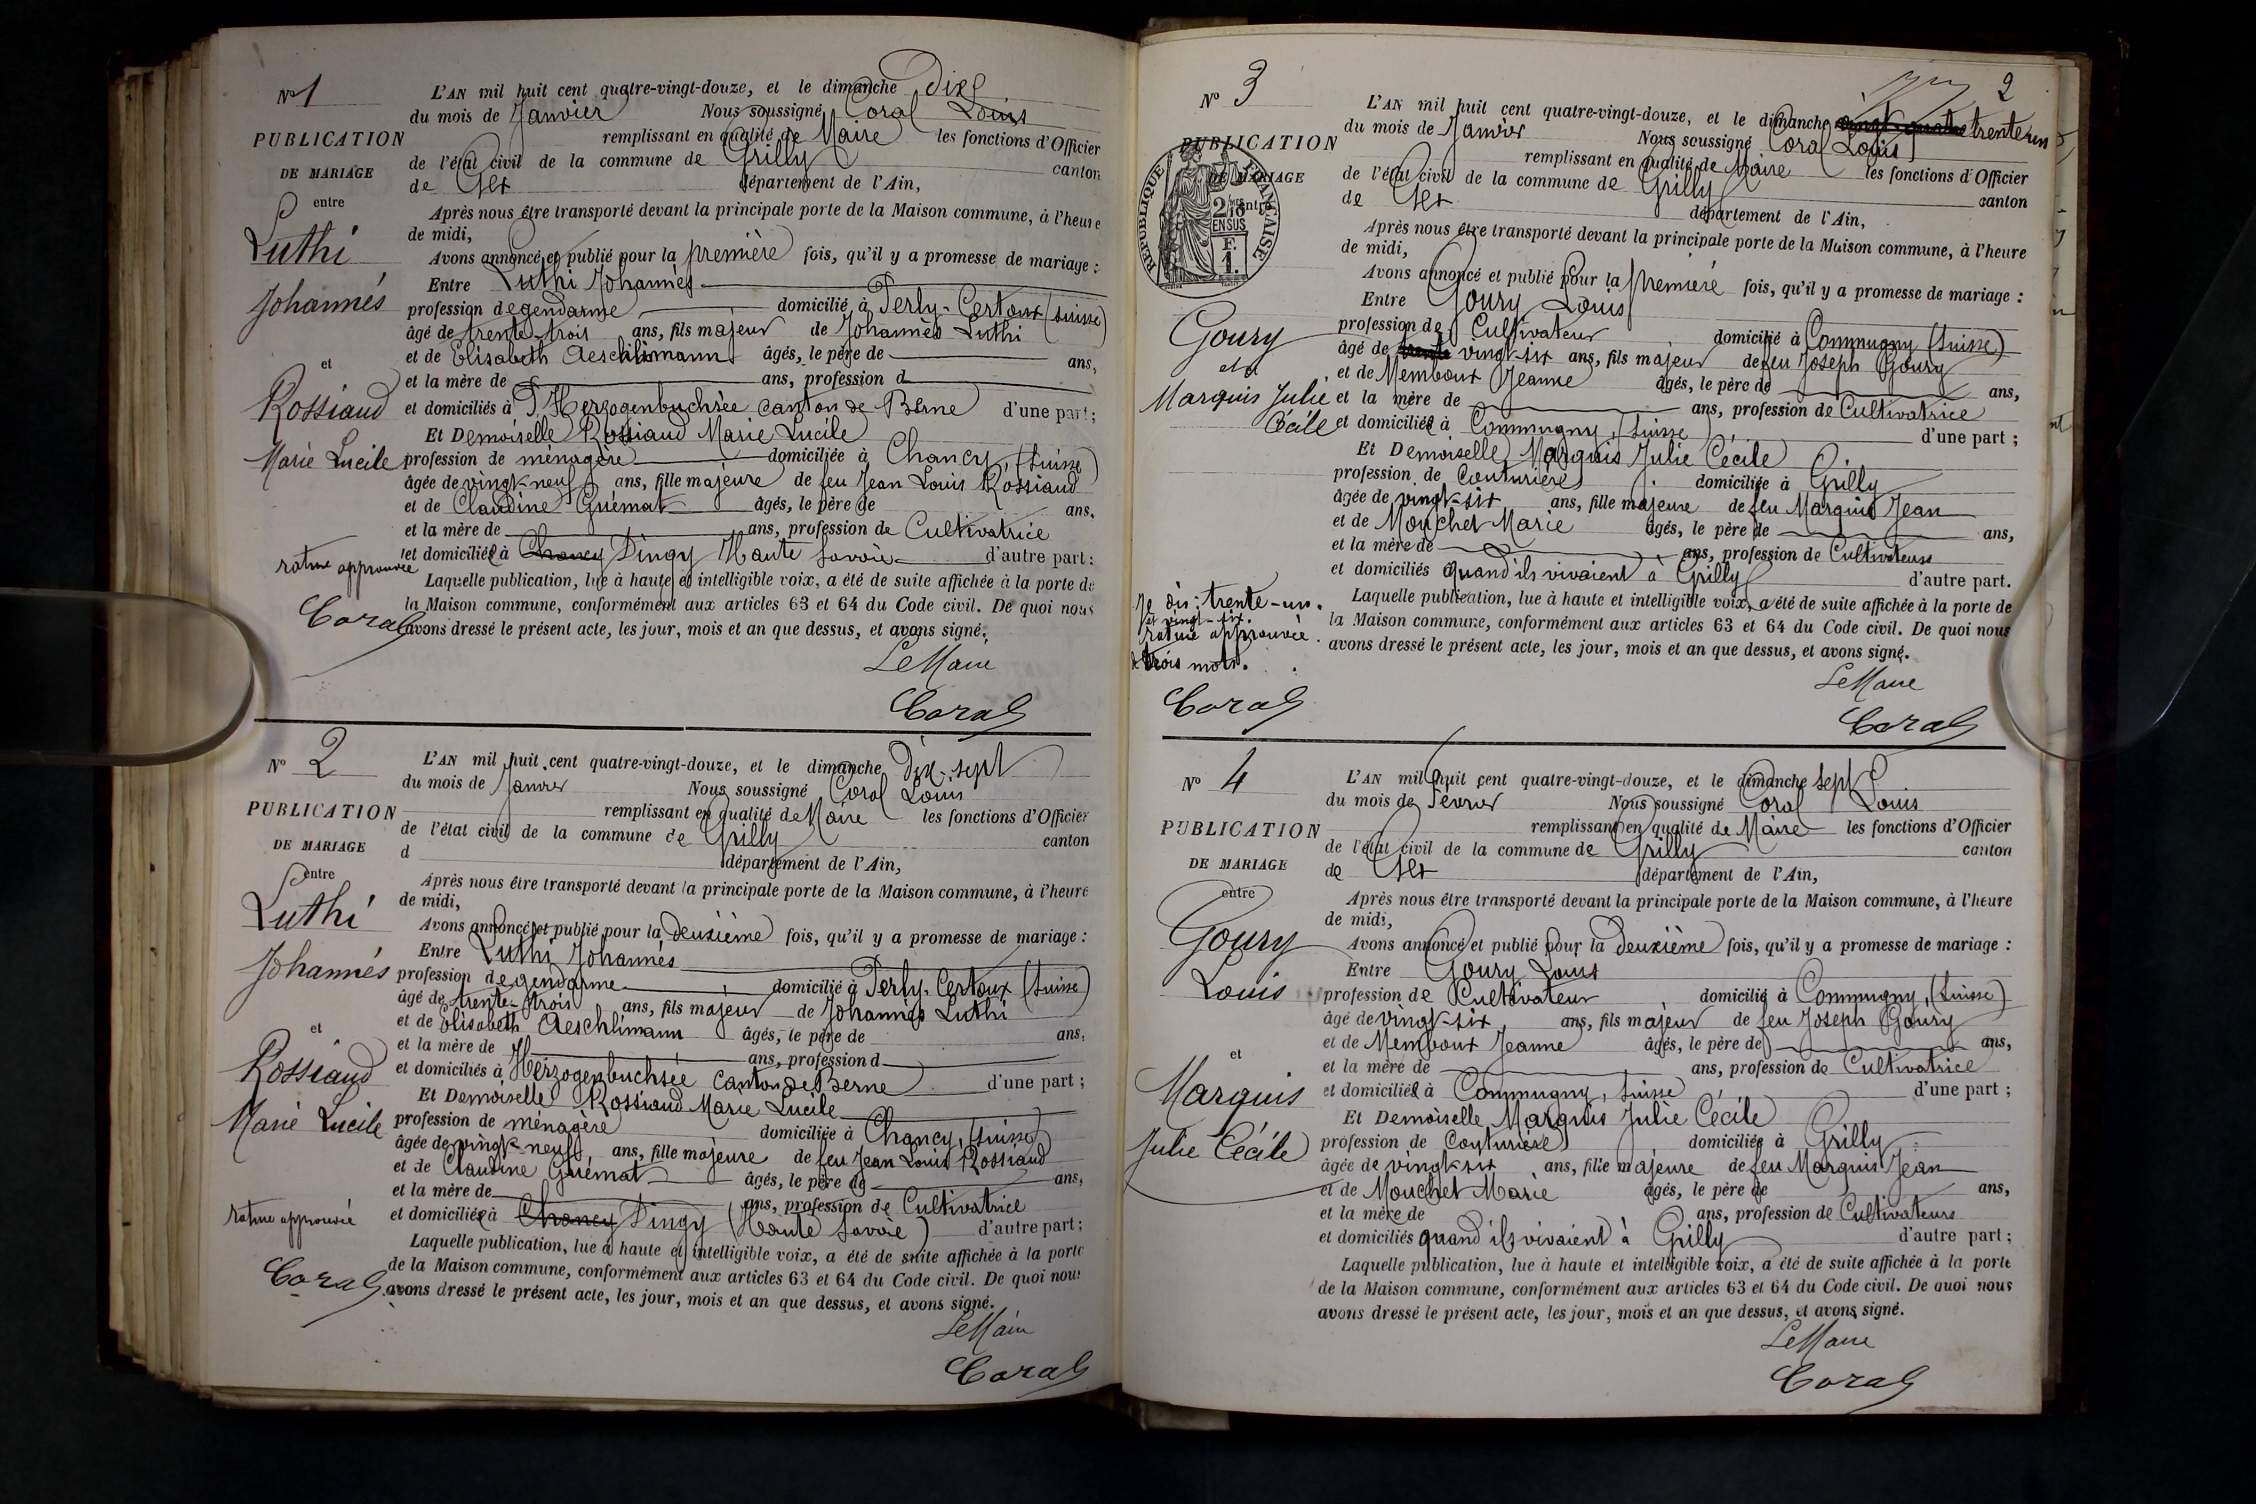 N° 1
PUBLICATION
DE MARIAGE
entre
Luthi
Johannés
et
Rossiaud
Marie Lucile
rature approuvée
Coral
L'AN mil huit cent quatre-vingt-douze, et le dimanche Dix
du mois de Janvier Nous soussigné Coral Louis
remplissant en qualité de Maire les fonctions d'Officier
de l'état civil de la commune de Grilly canton
de Gex département de l'Ain,
Après nous être transporté devant la principale porte de la Maison commune, à l'heure
de midi,
Avons annoncé et publié pour la première fois, qu'il y a promesse de mariage :
Entre Luthi Johannés
profession de gendarme domicilié à Perly-Certoux (Suisse)
âgé de trente-trois ans, fils majeur de Johannès Luthi
et de Elisabeth Aeschlimann âgés, le père de ans,
et la mère de ans, profession d
et domiciliés à Herzogenbuchsée canton de Berne d'une part;
Et Demoiselle Rossiaud Marie Lucile
profession de ménagère domiciliée à Chancy, (Suisse)
âgée de vingt-neuf ans, fille majeure de feu Jean Louis Rossiaud
et de Claudine Guémat âgés, le père de ans,
et la mère de ans, profession de Cultivatrice
et domiciliée à Chancy Dingy Haute Savoie d'autre part:
Laquelle publication, lue à haute et intelligible voix, a été de suite affichée à la porte de
la Maison commune, conformément aux articles 63 et 64 du Code civil. De quoi nous
avons dressé le présent acte, les jour, mois et an que dessus, et avons signé.
Le Maire
Coral
N° 2
PUBLICATION
DE MARIAGE
entre
Luthi
Johannés
et
Rossiaud
Marie Lucile
rature approuvée
Coral
L'AN mil huit cent quatre-vingt-douze, et le dimanche Dix-sept
du mois de Janvier Nous soussigné Coral Louis
remplissant en qualité de Maire les fonctions d'Officier
de l'état civil de la commune de Grilly canton
d département de l'Ain,
Après nous être transporté devant la principale porte de la Maison commune, à l'heure
de midi,
Avons annoncé et publié pour la deuxième fois, qu'il y a promesse de mariage :
Entre Luthi Johannés
profession de gendarme domicilié à Perly-Certoux (Suisse)
âgé de trente-trois ans, fils majeur de Johannès Luthi
et de Elisabeth Aeschlimann âgés, le père de ans,
et la mère de ans, profession d
et domiciliés à Herzogenbuchsée Canton de Berne d'une part ;
Et Demoiselle Rossiaud Marie Lucile
profession de ménagère domiciliée à Chancy, (Suisse)
âgée de vingt-neuf ans, fille majeure de feu Jean Louis Rossiaud
et de Claudine Guémat âgés, le père de ans,
et la mère de ans, profession de Cultivatrice
et domiciliée à Chancy Dingy (Haute Savoie) d'autre part;
Laquelle publication, lue à haute et intelligible voix, a été de suite affichée à la porte
de la Maison commune, conformément aux articles 63 et 64 du Code civil. De quoi nous
avons dressé le présent acte, les jour, mois et an que dessus, et avons signé.
Le Maire
Coral
2
N° 3
PUBLICATION
DE MARIAGE
entre
RÉPUBLIQUE FRANÇAISE
2/10 EN SUS
F.
1.
Goury
et
Marquis Julie
Cécile
Je dis: trente-un.
et vingt-six.
rature approuvée
de trois mots.
Coral
L'AN mil huit cent quatre-vingt-douze, et le dimanche vingt-quatre trente un
du mois de Janvier Nous soussigné Coral Louis
remplissant en qualité de Maire les fonctions d'Officier
de l'état civil de la commune de Grilly canton
de Gex département de l'Ain,
Après nous être transporté devant la principale porte de la Maison commune, à l'heure
de midi,
Avons annoncé et publié pour la première fois, qu'il y a promesse de mariage :
Entre Goury Louis
profession de Cultivateur domicilié à Commugny (Suisse)
âgé de trente vingt-six ans, fils majeur de feu Joseph Goury
et de Memboux Jeanne âgés, le père de ans,
et la mère de ans, profession de Cultivatrice
et domiciliée à Commugny, (Suisse) d'une part ;
Et Demoiselle Marquis Julie Cécile
profession de Couturière domiciliée à Grilly
âgée de vingt-six ans, fille majeure de feu Marquis Jean
et de Mouchet Marie âgés, le père de ans,
et la mère de ans, profession de Cultivateurs
et domiciliés quand ils vivaient à Grilly d'autre part.
Laquelle publication, lue à haute et intelligible voix, a été de suite affichée à la porte de
la Maison commune, conformément aux articles 63 et 64 du Code civil. De quoi nous
avons dressé le présent acte, les jour, mois et an que dessus, et avons signé.
Le Maire
Coral
N° 4
PUBLICATION
DE MARIAGE
entre
Goury
Louis
et
Marquis
Julie Cécile
L'AN mil huit cent quatre-vingt-douze, et le dimanche sept
du mois de Février Nous soussigné Coral Louis
remplissant en qualité de Maire les fonctions d'Officier
de l'état civil de la commune de Grilly canton
de Gex département de l'Ain,
Après nous être transporté devant la principale porte de la Maison commune, à l'heure
de midi,
Avons annoncé et publié pour la deuxième fois, qu'il y a promesse de mariage :
Entre Goury Louis
profession de Cultivateur domicilié à Commugny, (Suisse)
âgé de vingt-six ans, fils majeur de feu Joseph Goury
et de Memboux Jeanne âgés, le père de ans,
et la mère de ans, profession de Cultivatrice
et domiciliée à Commugny, Suisse d'une part ;
Et Demoiselle Marquis Julie Cécile
profession de Couturière domiciliée à Grilly
âgée de vingt-six ans, fille majeure de feu Marquis Jean
et de Mouchet Marie âgés, le père de ans,
et la mère de ans, profession de Cultivateurs
et domiciliés quand ils vivaient à Grilly d'autre part;
Laquelle publication, lue à haute et intelligible voix, a été de suite affichée à la porte
de la Maison commune, conformément aux articles 63 et 64 du Code civil. De quoi nous
avons dressé le présent acte, les jour, mois et an que dessus, et avons signé.
Le Maire
Coral